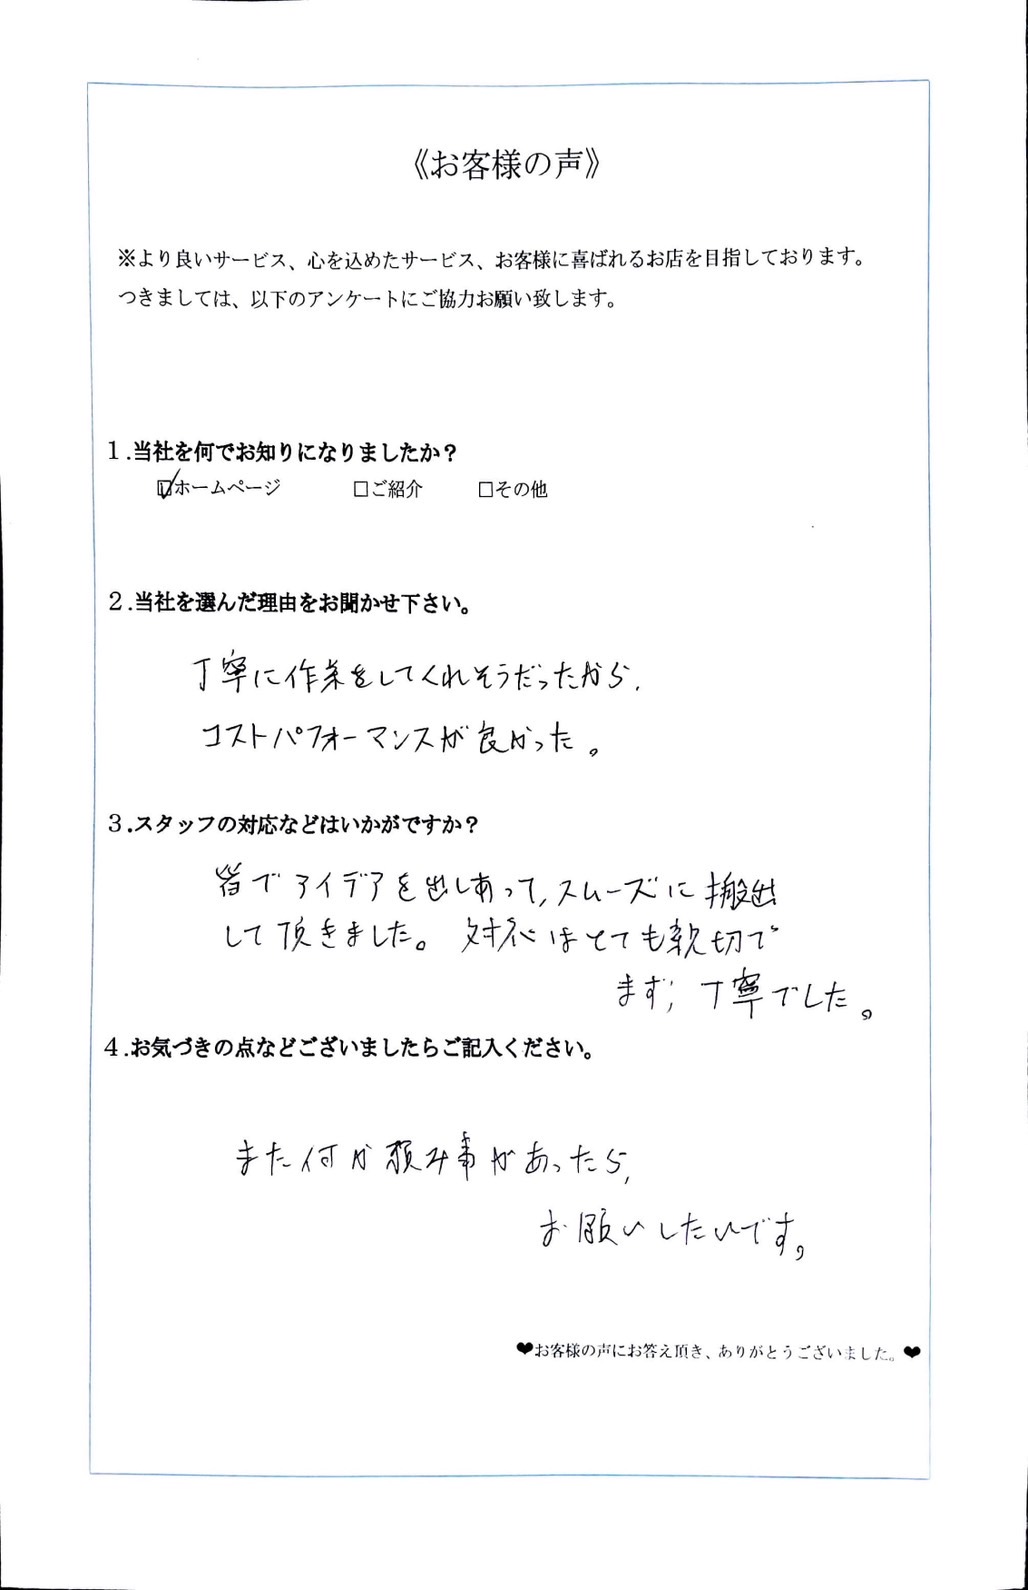 《お客様の声》
※より良いサービス、心を込めたサービス、お客様に喜ばれるお店を目指しております。
つきましては、以下のアンケートにご協力お願い致します。
1.当社を何でお知りになりましたか？
☑ホームページ □ご紹介 □その他
2.当社を選んだ理由をお聞かせ下さい。
丁寧に作業をしてくれそうだったから、
コストパフォーマンスが良かった。
3.スタッフの対応などはいかがですか？
皆でアイデアを出しあって、スムーズに搬出
して頂きました。 対応はとても親切で
丁寧でした。
4.お気づきの点などございましたらご記入ください。
また何か頼み事があったら、
お願いしたいです。
❤お客様の声にお答え頂き、ありがとうございました。❤